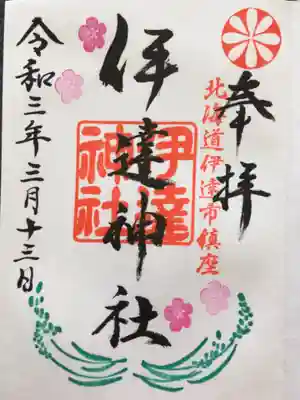 奉拝
北海道伊達市鎮座
伊達神社
伊達神社
令和三年三月十三日